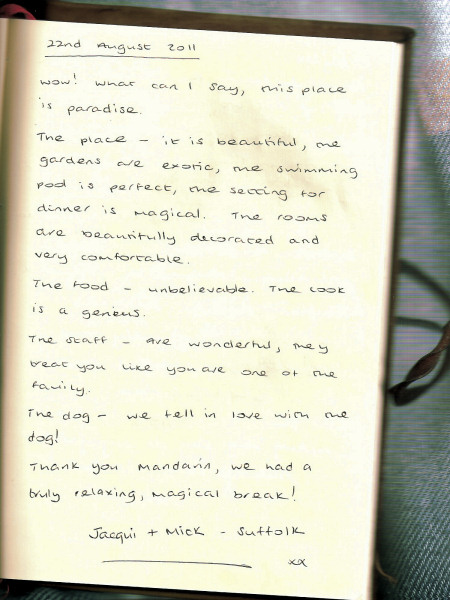 22nd August 2011
Wow! What can I say, this place
is paradise.
The place - it is beautiful, the
gardens are exotic, the swimming
pool is perfect, the setting for
dinner is magical. The rooms
are beautifully decorated and
very comfortable.
The food - unbelievable. The cook
is a genius.
The staff - are wonderful, they
treat you like you are one of the
family.
The dog - we fell in love with the
dog!
Thank you Mandarin, we had a
truly relaxing, magical break!
Jacqui + Mick - Suffolk
xx